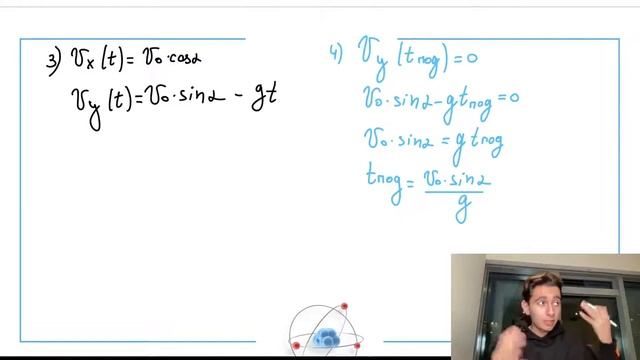 3) υₓ(t) = υ₀·cosα
υᵧ(t) = υ₀·sinα - gt
4) υᵧ(tпод) = 0
υ₀·sinα - gtпод = 0
υ₀·sinα = gtпод
tпод = υ₀·sinα
g